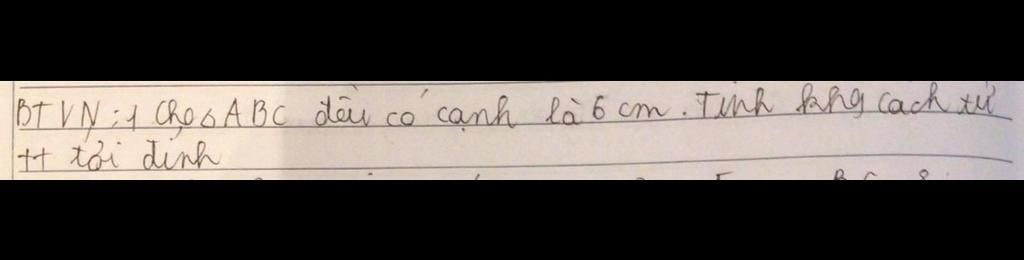 BTVN: 1 Cho △ ABC đều có cạnh là 6 cm. Tính khg cách từ
tt tới đỉnh